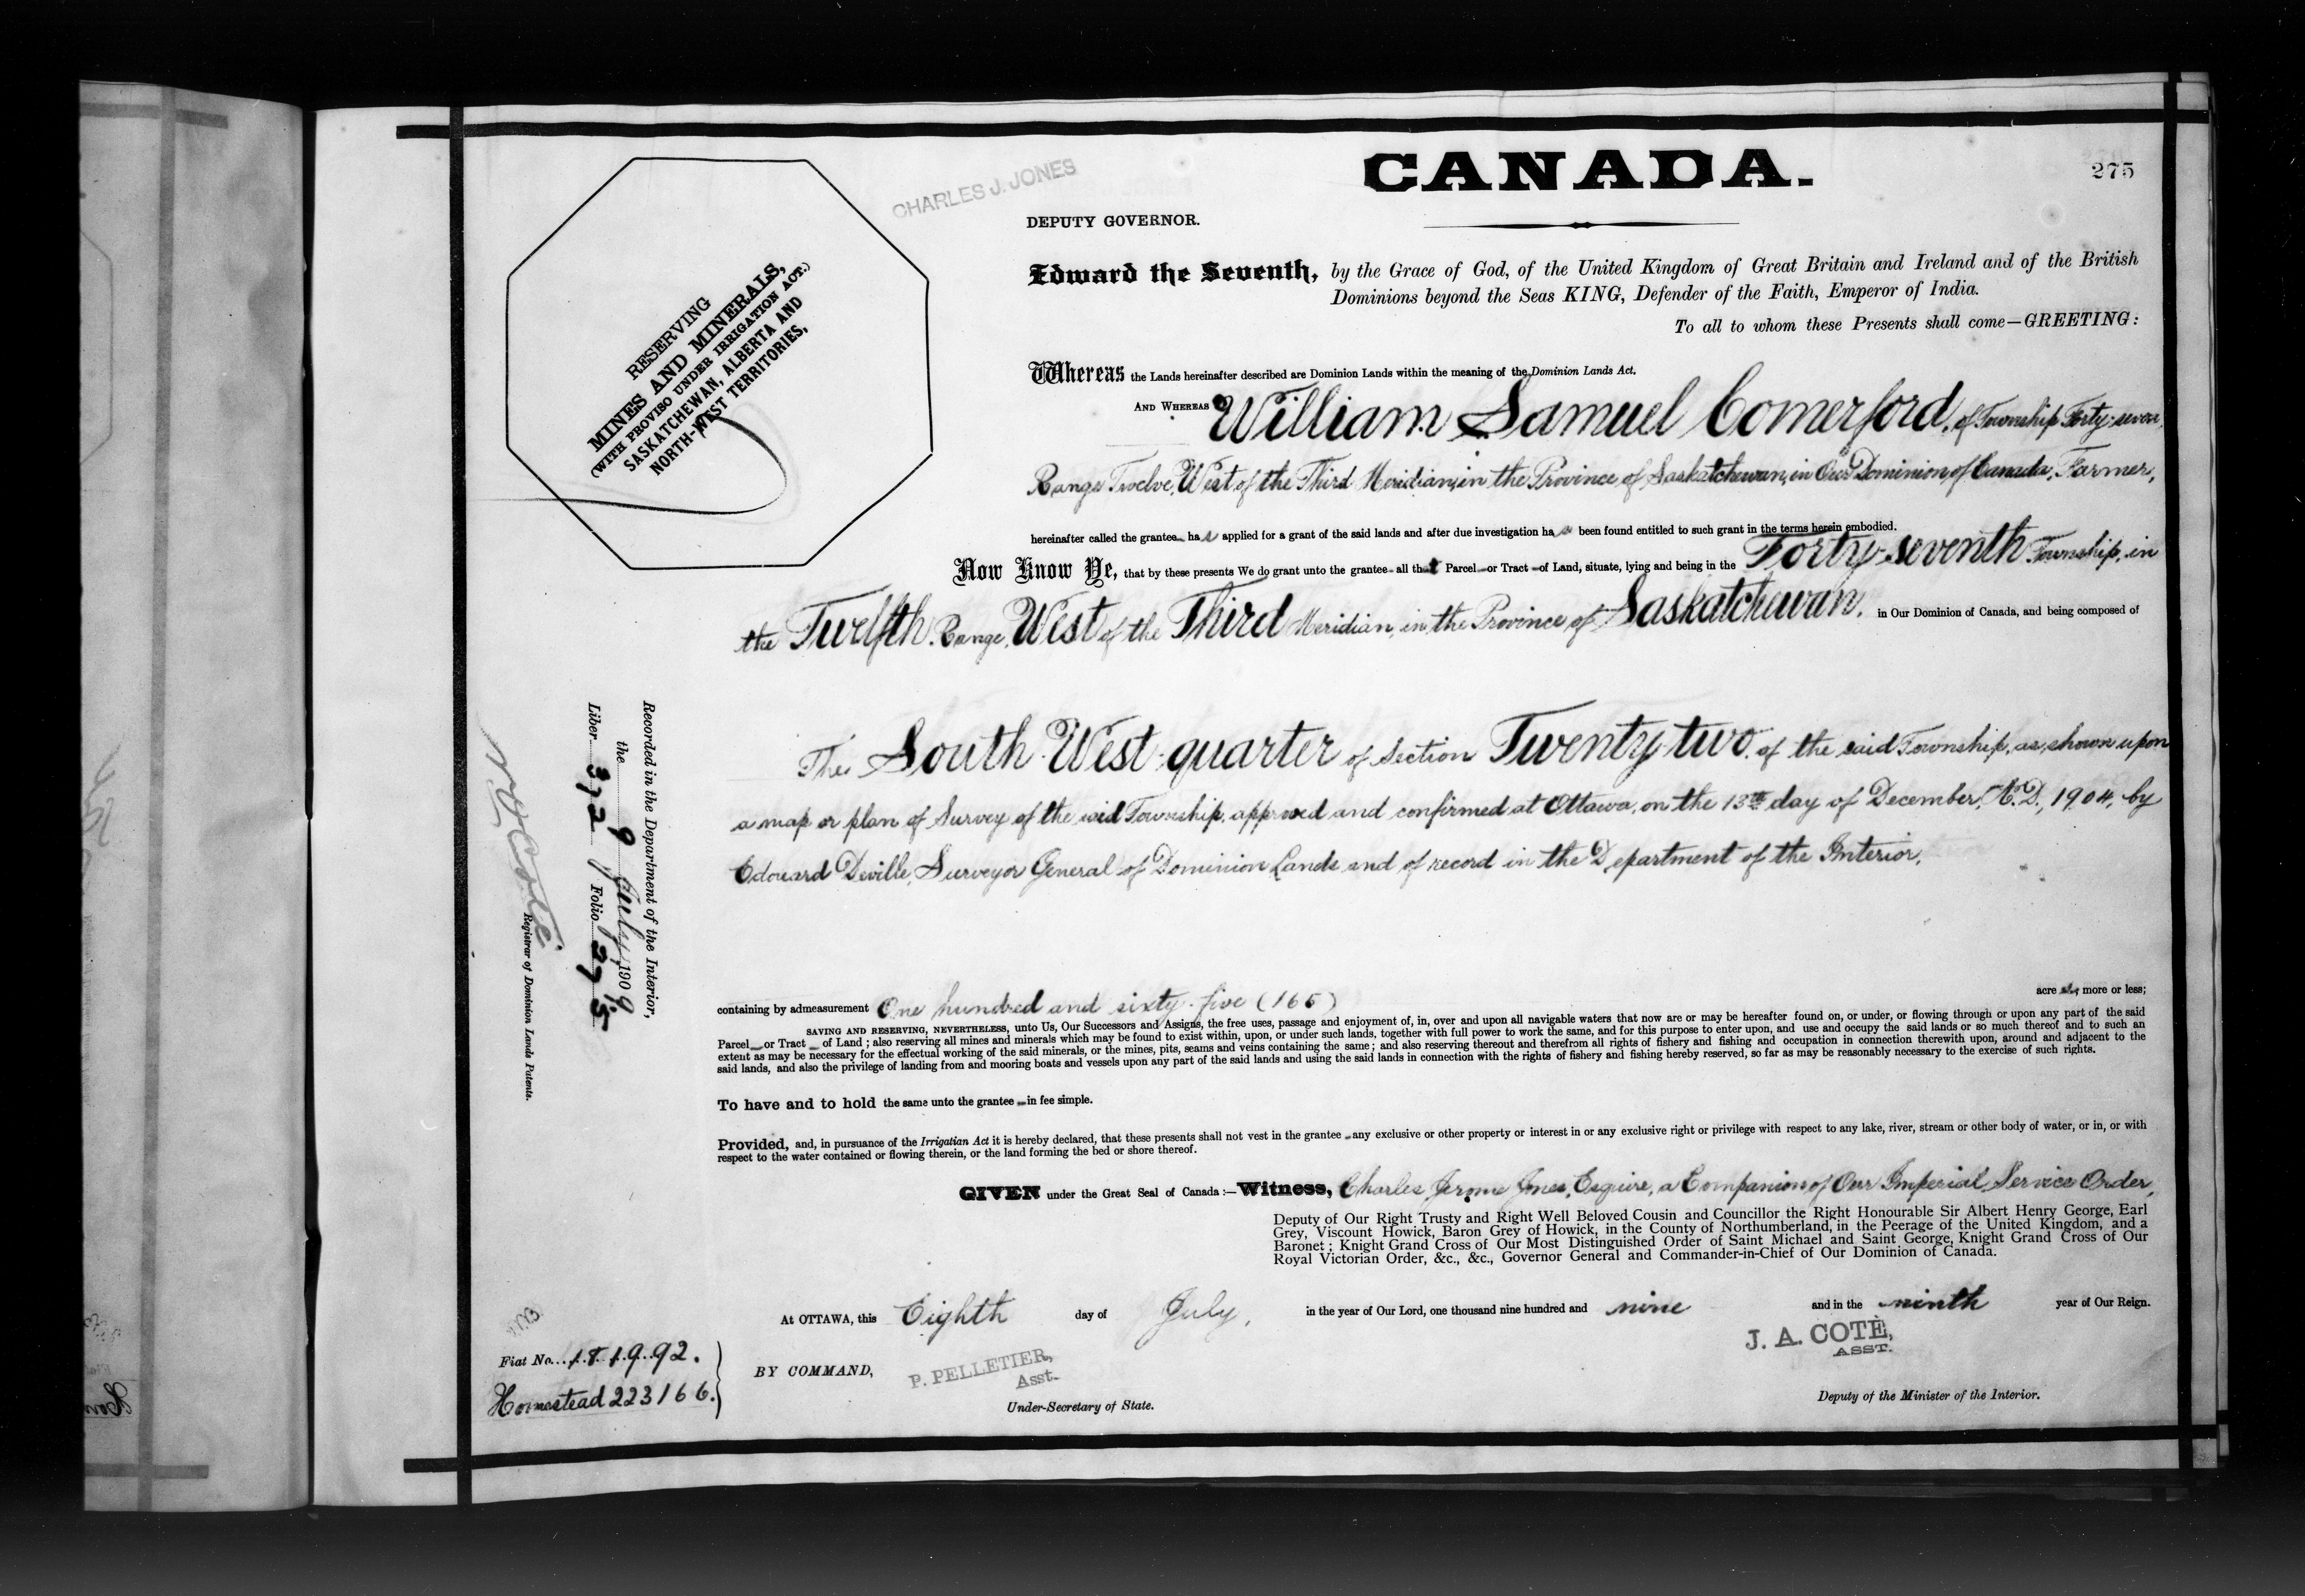 CANADA.
275
CHARLES J. JONES
DEPUTY GOVERNOR.
RESERVING
MINES AND MINERALS,
(WITH PROVISO UNDER IRRIGATION ACT.)
SASKATCHEWAN, ALBERTA AND
NORTH-WEST TERRITORIES,
Edward the Seventh, by the Grace of God, of the United Kingdom of Great Britain and Ireland and of the British
Dominions beyond the Seas KING, Defender of the Faith, Emperor of India.
To all to whom these Presents shall come—GREETING:
Whereas the Lands hereinafter described are Dominion Lands within the meaning of the Dominion Lands Act.
AND WHEREAS William Samuel Comerford, of Township Forty-seven,
Range Twelve, West of the Third Meridian, in the Province of Saskatchewan, in Our Dominion of Canada, Farmer,
hereinafter called the grantee has applied for a grant of the said lands and after due investigation has been found entitled to such grant in the terms herein embodied.
Now Know Ye, that by these presents We do grant unto the grantee all that Parcel or Tract of Land, situate, lying and being in the Forty-seventh Township, in
the Twelfth Range, West of the Third Meridian, in the Province of Saskatchewan, in Our Dominion of Canada, and being composed of
The South West quarter of Section Twenty two of the said Township, as shown upon
a map or plan of Survey of the said Township, approved and confirmed at Ottawa, on the 13th day of December, A.D., 1904, by
Edouard Deville, Surveyor General of Dominion Lands and of record in the Department of the Interior,
Recorded in the Department of the Interior,
the 9 July, 1909
Liber 372 Folio 275
N O Coté
Registrar of Dominion Lands Patents.
containing by admeasurement One hundred and sixty-five (165) acres, more or less;
SAVING AND RESERVING, NEVERTHELESS, unto Us, Our Successors and Assigns, the free uses, passage and enjoyment of, in, over and upon all navigable waters that now are or may be hereafter found on, or under, or flowing through or upon any part of the said
Parcel or Tract of Land; also reserving all mines and minerals which may be found to exist within, upon, or under such lands, together with full power to work the same, and for this purpose to enter upon, and use and occupy the said lands or so much thereof and to such an
extent as may be necessary for the effectual working of the said minerals, or the mines, pits, seams and veins containing the same; and also reserving thereout and therefrom all rights of fishery and fishing and occupation in connection therewith upon, around and adjacent to the
said lands, and also the privilege of landing from and mooring boats and vessels upon any part of the said lands and using the said lands in connection with the rights of fishery and fishing hereby reserved, so far as may be reasonably necessary to the exercise of such rights.
To have and to hold the same unto the grantee in fee simple.
Provided, and, in pursuance of the Irrigatian Act it is hereby declared, that these presents shall not vest in the grantee any exclusive or other property or interest in or any exclusive right or privilege with respect to any lake, river, stream or other body of water, or in, or with
respect to the water contained or flowing therein, or the land forming the bed or shore thereof.
GIVEN under the Great Seal of Canada:—Witness, Charles Jerome Jones, Esquire, a Companion of Our Imperial Service Order,
Deputy of Our Right Trusty and Right Well Beloved Cousin and Councillor the Right Honourable Sir Albert Henry George, Earl
Grey, Viscount Howick, Baron Grey of Howick, in the County of Northumberland, in the Peerage of the United Kingdom, and a
Baronet; Knight Grand Cross of Our Most Distinguished Order of Saint Michael and Saint George, Knight Grand Cross of Our
Royal Victorian Order, &c., &c., Governor General and Commander-in-Chief of Our Dominion of Canada.
At OTTAWA, this Eighth day of July, in the year of Our Lord, one thousand nine hundred and nine and in the ninth year of Our Reign.
Fiat No. 181992.
Homestead 223166.
BY COMMAND,
P. PELLETIER,
Asst.
Under-Secretary of State.
J. A. COTÈ,
ASST.
Deputy of the Minister of the Interior.